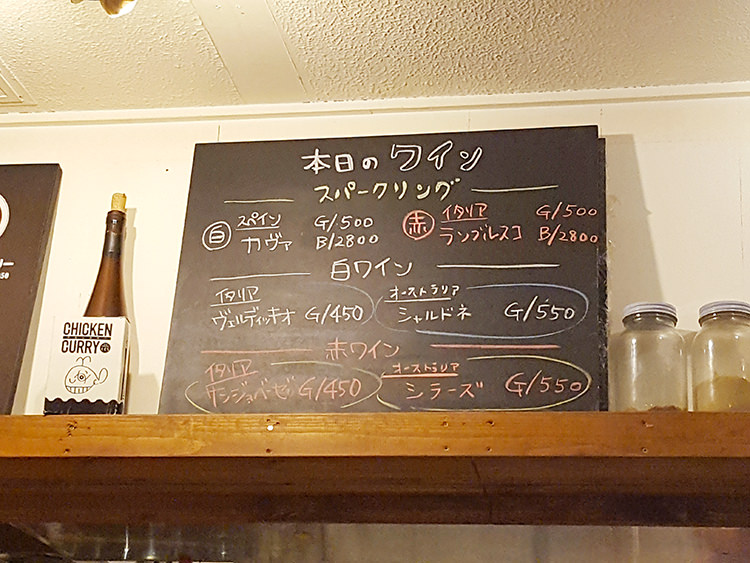 本日のワイン
スパークリング
白 スペイン G/500
カヴァ B/2800
赤 イタリア G/500
ランブルスコ B/2800
白ワイン
イタリア
ヴェルディッキオ G/450
オーストラリア
シャルドネ G/550
赤ワイン
イタリア
サンジョベーゼ G/450
オーストラリア
シラーズ G/550
CHICKEN
CURRY